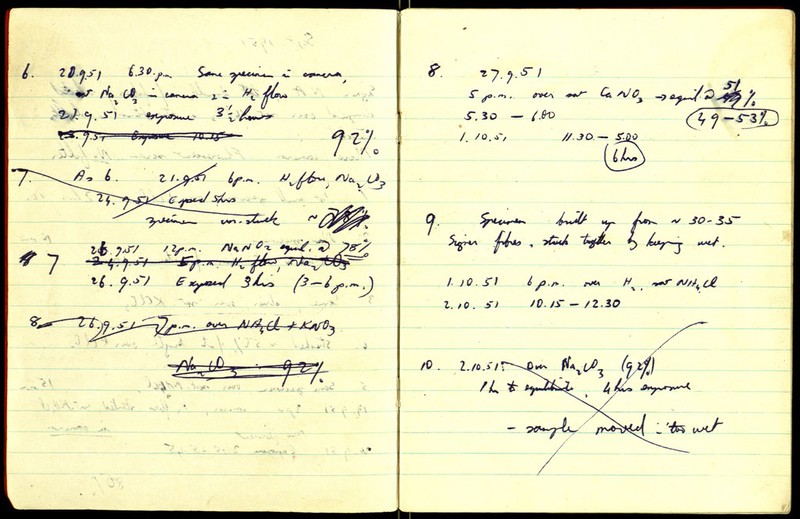 6. 20.9.51 6.30 p.m Same specimen in camera,
sat Na2CO3 in camera & in H2 flow
21.9.51 exposure 3½ hours
23.9.51 Exposure 10.15
92%
7. As 6. 21.9.51 6 p.m. H2 flow, Na2CO3
24.9.51 Exposed 5 hrs
specimen un-stuck ~
26.9.51 12 p.m. NaNO2 equil. @ 78%
8 7 24.9.51 5 p.m. H2 flow, Na2CO3
26.9.51 Exposed 3 hrs (3-6 p.m.)
8 26.9.51 7 p.m. over NH4Cl + KNO3
Na2CO3 92%
8. 27.9.51
5 p.m. over sat CaNO3 → equil @ 51%
5.30 - 6.00 49-53%
1.10.51 11.30 - 5.00
6 hrs
9. Specimen built up from ~ 30-35
Signer fibres, stuck together by keeping wet.
1.10.51 6 p.m. over H2, sat NH4Cl
2.10.51 10.15 - 12.30
10. 2.10.51 Over Na2CO3 (92%)
1 hr to equilibrate, 4 hrs exposure
- sample moved ∴ too wet